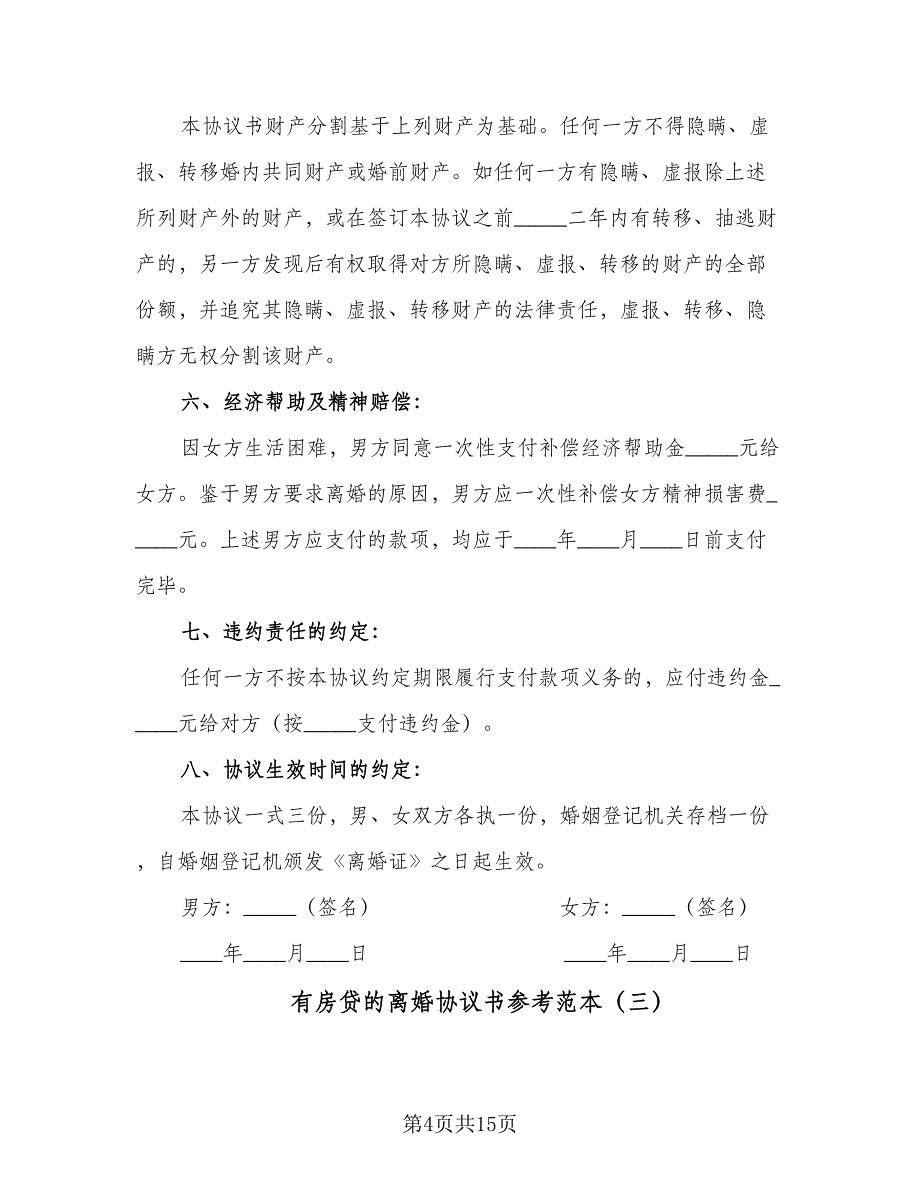 本协议书财产分割基于上列财产为基础。任何一方不得隐瞒、虚
报、转移婚内共同财产或婚前财产。如任何一方有隐瞒、虚报除上述
所列财产外的财产，或在签订本协议之前_____二年内有转移、抽逃财
产的，另一方发现后有权取得对方所隐瞒、虚报、转移的财产的全部
份额，并追究其隐瞒、虚报、转移财产的法律责任，虚报、转移、隐
瞒方无权分割该财产。
六、经济帮助及精神赔偿：
因女方生活困难，男方同意一次性支付补偿经济帮助金_____元给
女方。鉴于男方要求离婚的原因，男方应一次性补偿女方精神损害费_
____元。上述男方应支付的款项，均应于____年____月____日前支付
完毕。
七、违约责任的约定：
任何一方不按本协议约定期限履行支付款项义务的，应付违约金_
____元给对方（按_____支付违约金）。
八、协议生效时间的约定：
本协议一式三份，男、女双方各执一份，婚姻登记机关存档一份
，自婚姻登记机颁发《离婚证》之日起生效。
男方：_____（签名） 女方：_____（签名）
____年____月____日 ____年____月____日
有房贷的离婚协议书参考范本（三）
第4页共15页